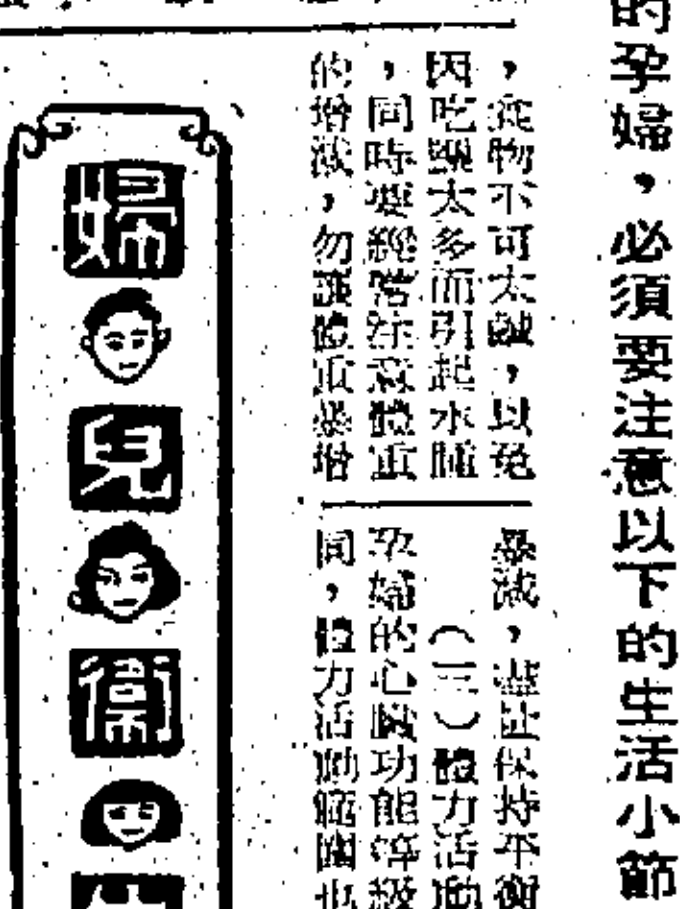 的孕婦，必須要注意以下的生活小節
，食物不可太鹹，以免
因吃鹽太多而引起水腫
，同時要經常注意體重
的增減，勿讓體重暴增
暴減，儘量保持平衡
（三）體力活動
孕婦的心臟功能等級
同，體力活動範圍也
婦兒衛